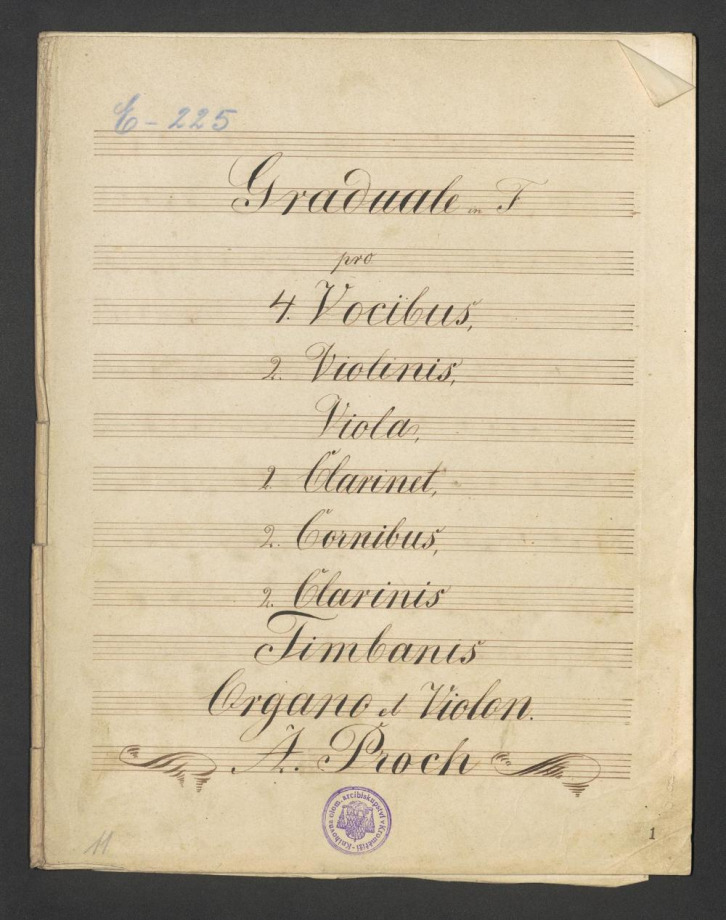 E-225
Graduale in F
pro
4. Vocibus,
2. Violinis,
Viola,
1. Clarinet,
2. Cornibus,
2. Clarinis
Timbanis
Organo et Violon.
A. Proch
Knihovna olom. arcibiskupství v Kroměříži
11
1